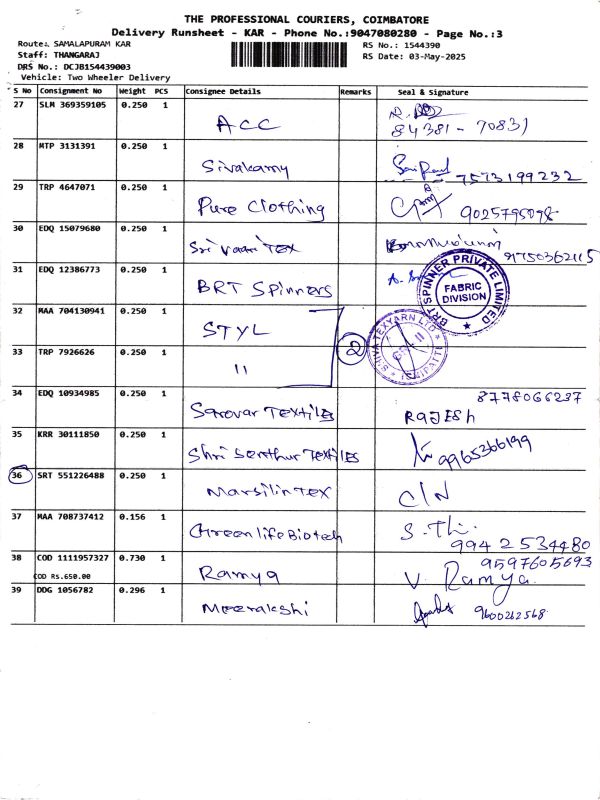 THE PROFESSIONAL COURIERS, COIMBATORE
Delivery Runsheet - KAR - Phone No.:9047080280 - Page No.:3
Route: SAMALAPURAM KAR
RS No.: 1544390
Staff: THANGARAJ
RS Date: 03-May-2025
DRS No.: DCJB154439003
Vehicle: Two Wheeler Delivery
S No Consignment No Weight PCS Consignee Details Remarks Seal & Signature
27 SLM 369359105 0.250 1 ACC 84381-70831
28 MTP 3131391 0.250 1 Sivakamy 7573199232
29 TRP 4647071 0.250 1 Pure Clothing
30 EDQ 15079680 0.250 1 Sri Vaari Tex 9750362115
31 EDQ 12386773 0.250 1 BRT Spinners
BRT SPINNER PRIVATE LIMITED
FABRIC
DIVISION
32 MAA 704130941 0.250 1 STYL
2
SHIVA TEXYARN LTD
33 TRP 7926626 0.250 1 "
34 EDQ 10934985 0.250 1 Sarovar Textiles RAJESH 8778066237
35 KRR 30111850 0.250 1 Shri Senthur Textiles 9965366199
36 SRT 551226488 0.250 1 Marsilin Tex C/N
37 MAA 708737412 0.156 1 Green life Biotech 9942534480
38 COD 1111957327 0.730 1 Ramya V. Ramya 9597605693
COD RS.650.00
39 DDG 1056782 0.296 1 Meerakshi 9600212568